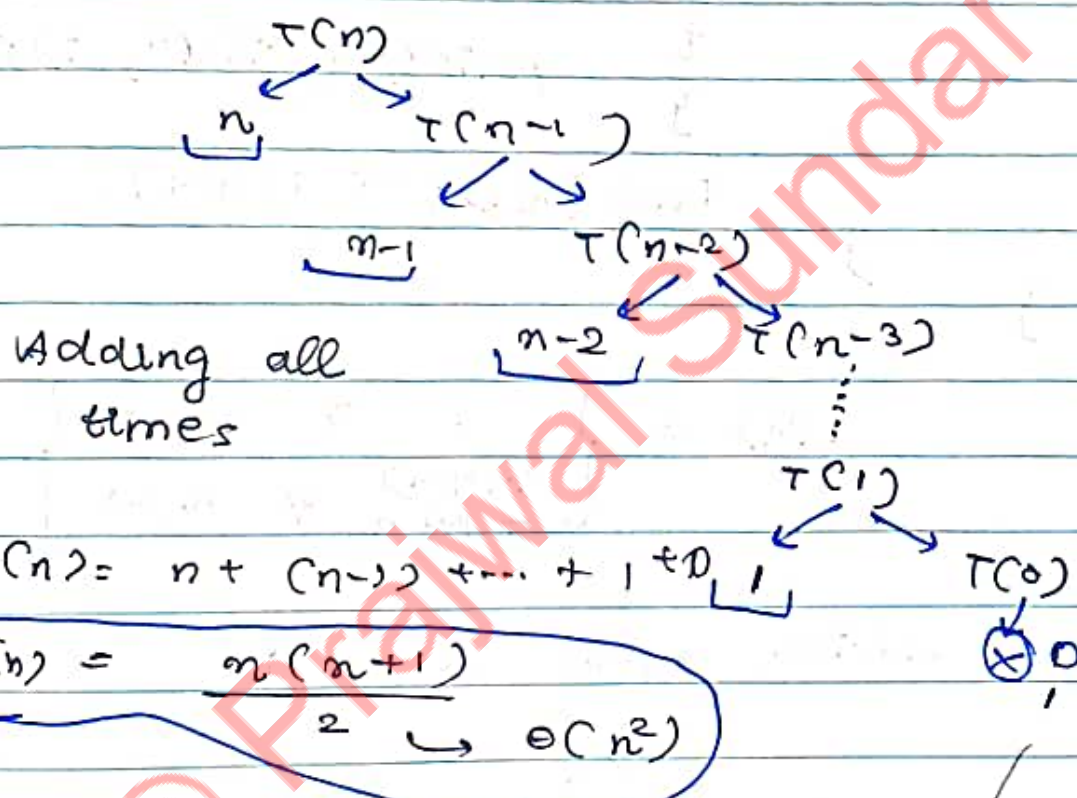 T(n)
n T(n-1)
n-1 T(n-2)
n-2 T(n-3)
Adding all
times
T(1)
(n) = n + (n-1) + .... + 1 + 0
1 T(0)
0
n) = n(n+1)
2 → θ(n²)
Prajwal Sundar